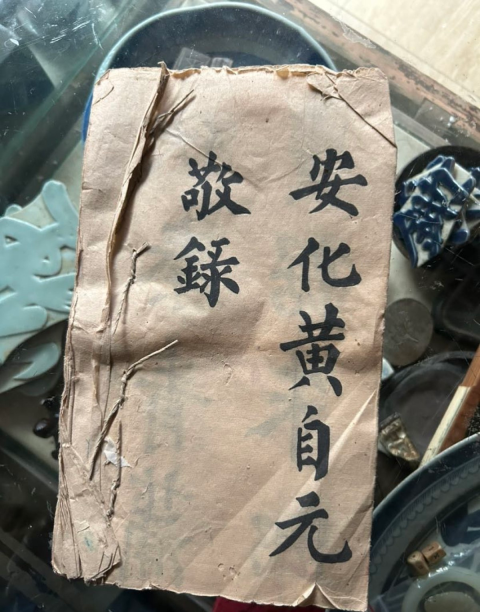 安化黄自元
敬録